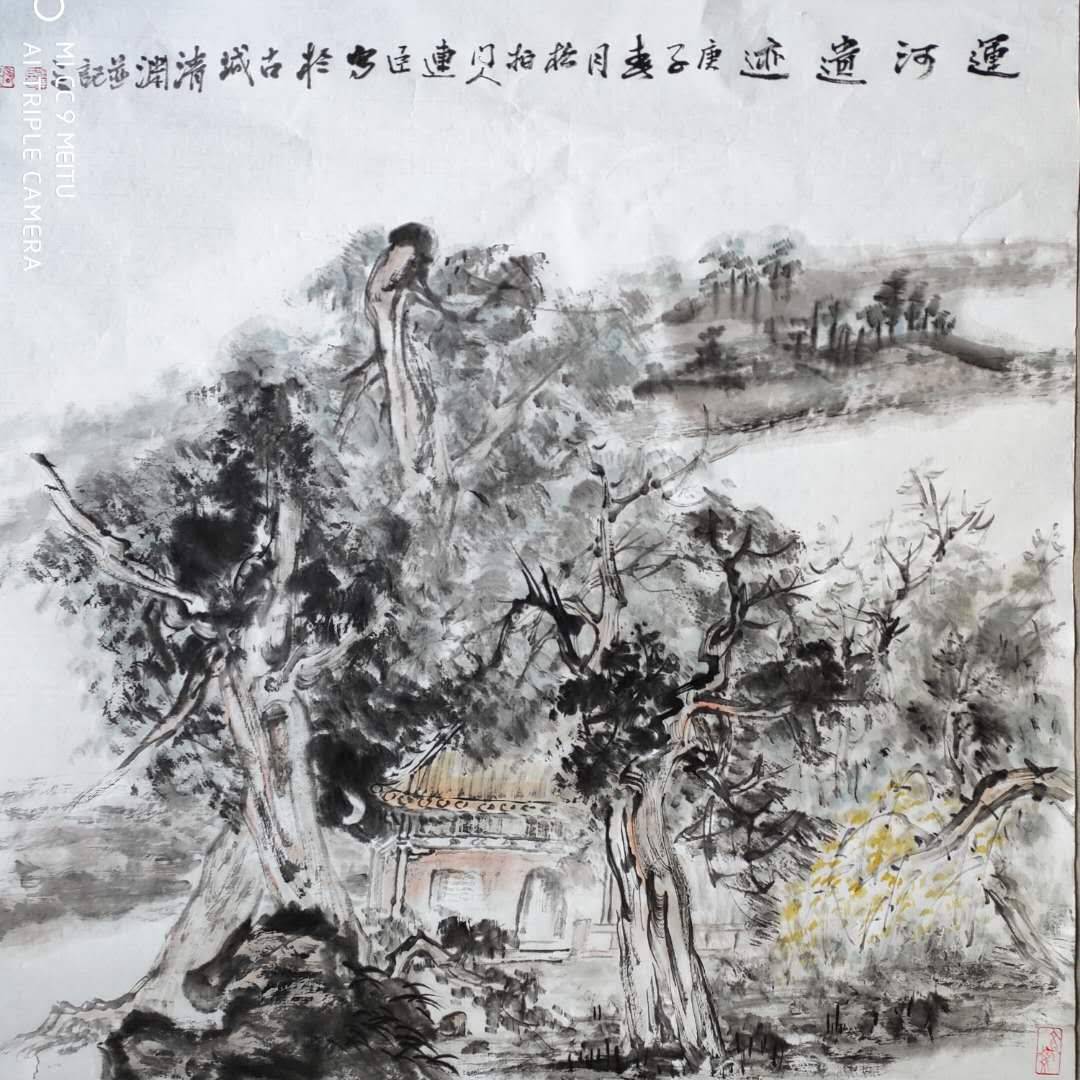 運河遺迹 庚子春月松柏门人連臣写於古城清渊並記
MI CC 9 MEITU
AI TRIPLE CAMERA